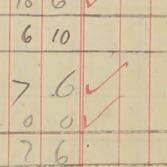 10 6 ✓
6 10
7 6 ✓
0 0 ✓
7 6